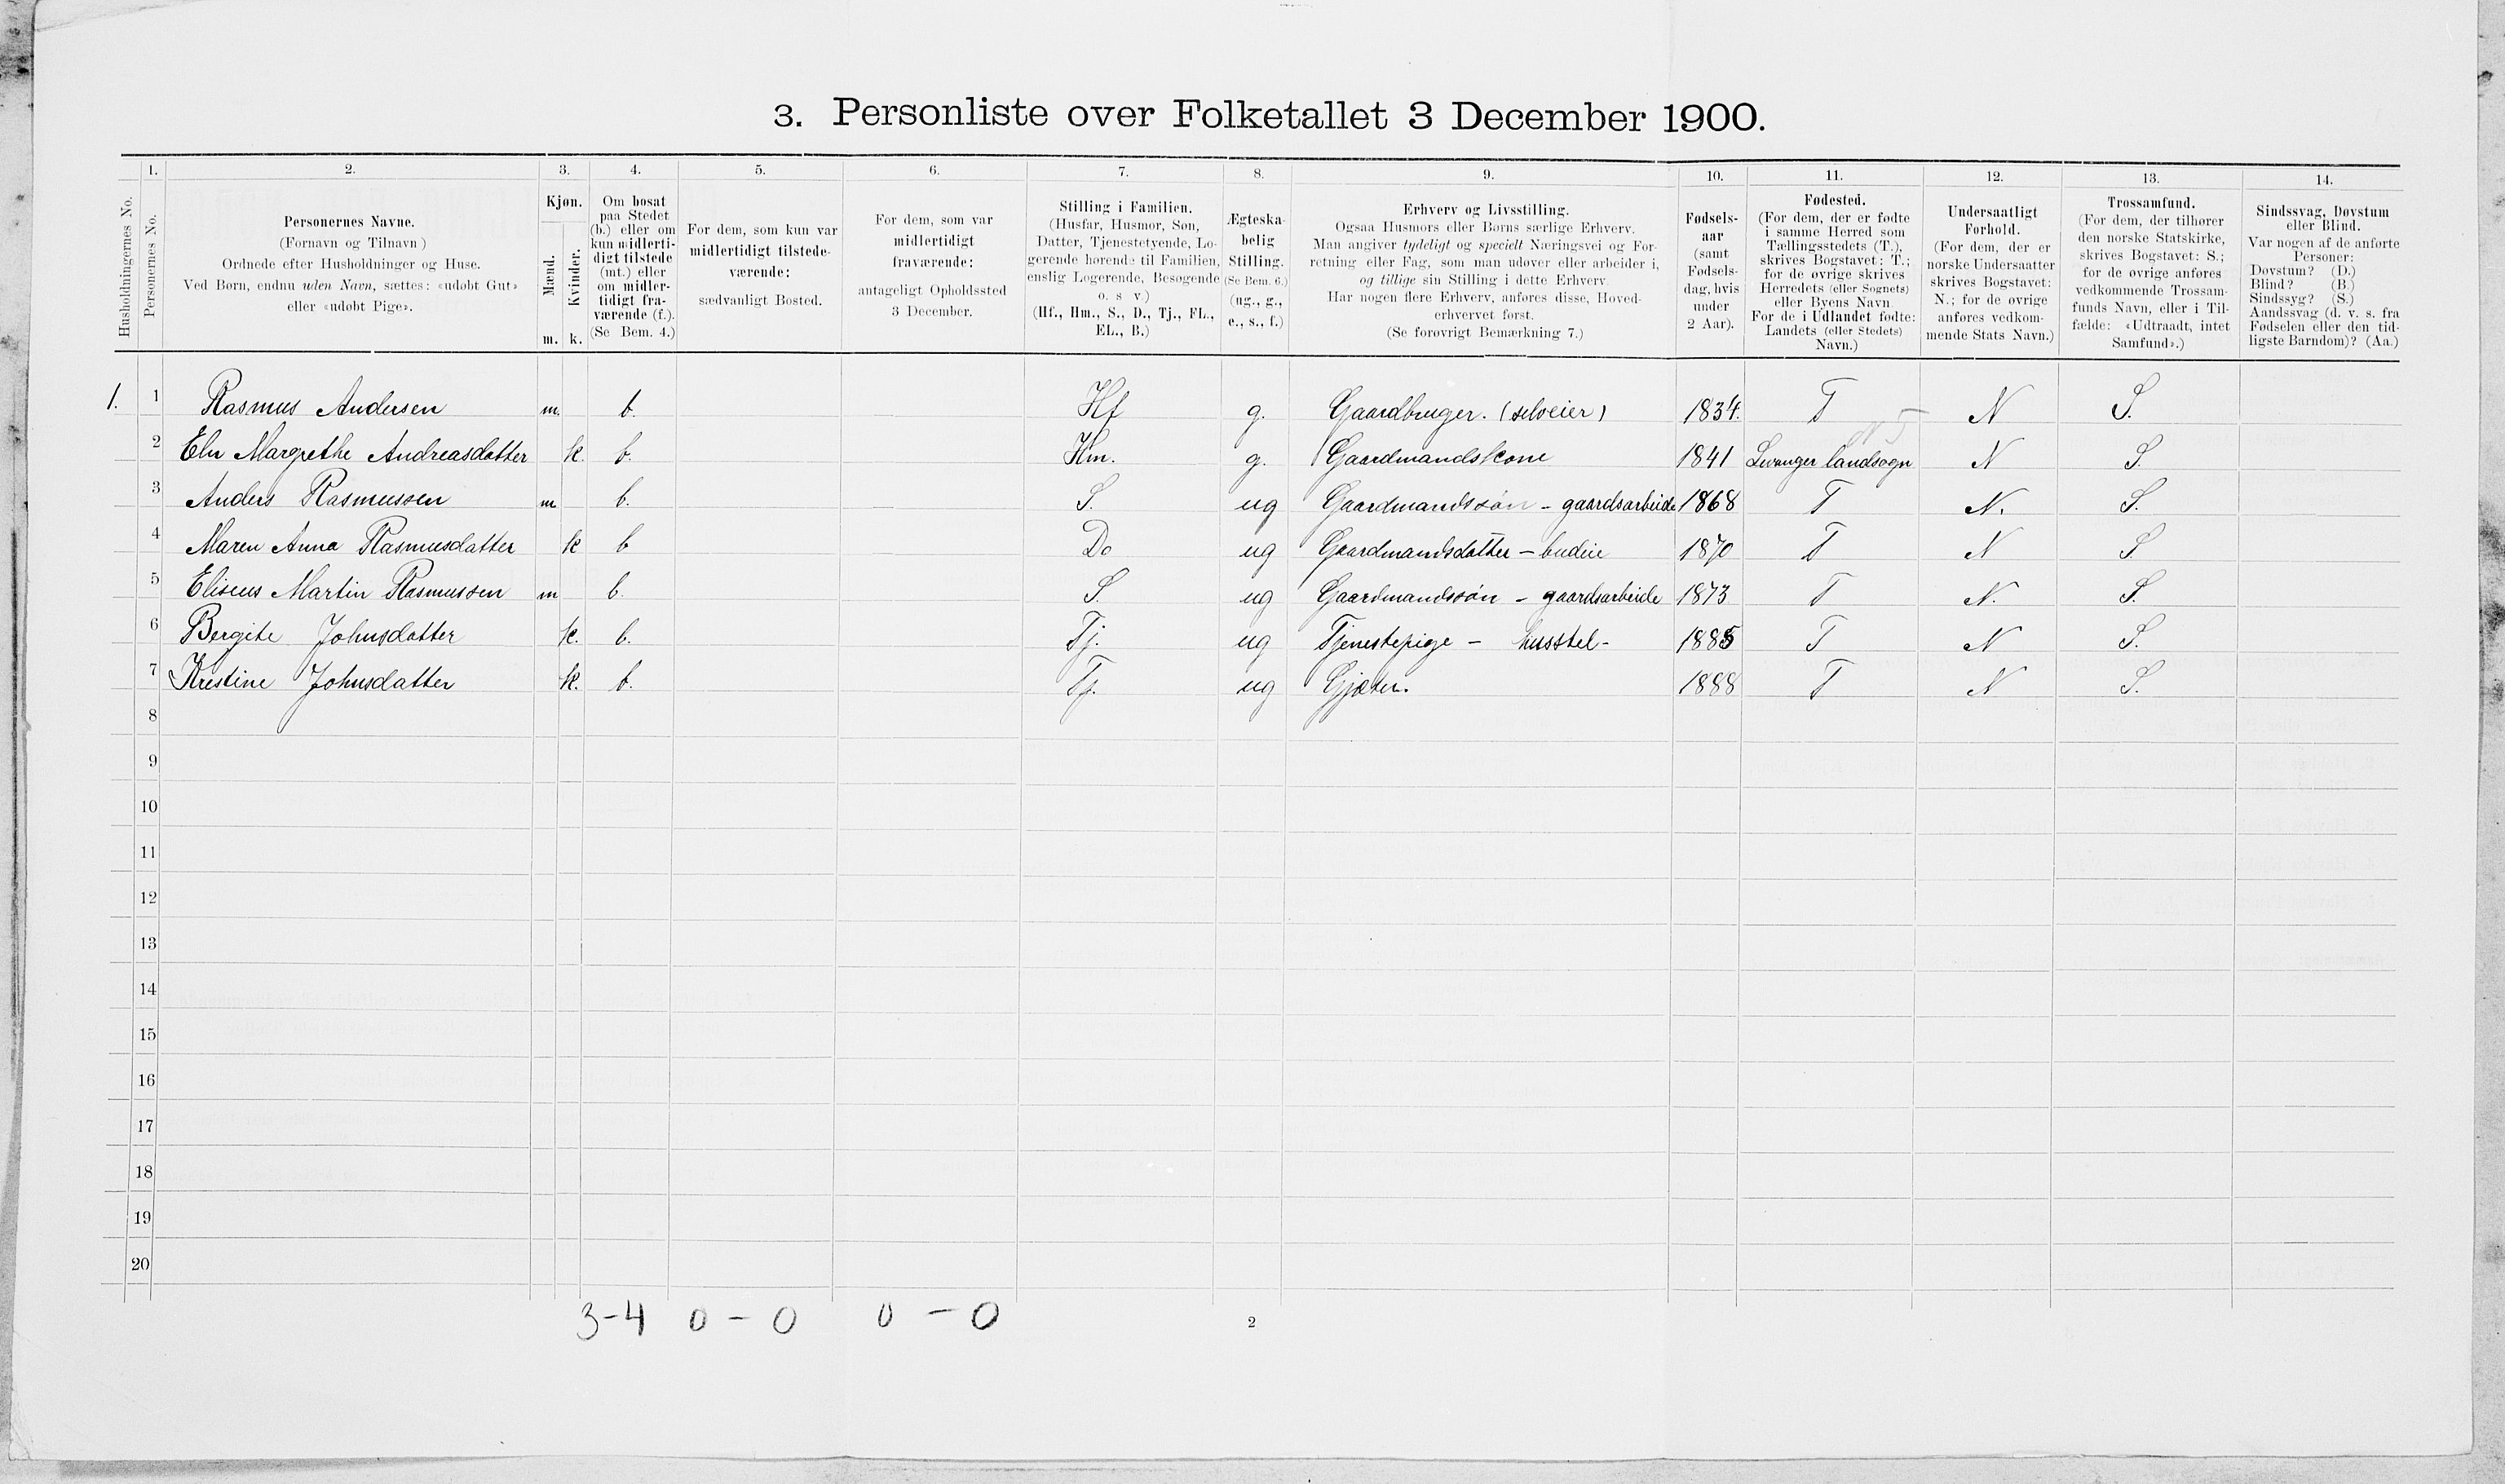 3. Personliste over Folketallet 3 December 1900.
1. 2. 3. 4. 5. 6. 7. 8. 9. 10. 11. 12. 13. 14.
Husholdningernes No.
Personernes No.
Personernes Navne.
(Fornavn og Tilnavn)
Ordnede efter Husholdninger og Huse.
Ved Børn, endnu uden Navn, sættes: «udøbt Gut»
eller «udøbt Pige».
Kjøn.
Mænd.
Kvinder.
m. k.
Om bosat
paa Stedet
(b.) eller om
kun midlerti-
digt tilstede
(mt.) eller
om midler-
tidigt fra-
værende (f.).
(Se Bem. 4.)
For dem, som kun var
midlertidigt tilstede-
værende:
sædvanligt Bosted.
For dem, som var
midlertidigt
fraværende:
antageligt Opholdssted
3 December.
Stilling i Familien.
(Husfar, Husmor, Søn,
Datter, Tjenestetyende, Lo-
gerende hørende til Familien,
enslig Logerende, Besøgende
o. s v.)
(Hf., Hm., S., D., Tj., FL.,
EL., B.)
Ægteska-
belig
Stilling.
(Se Bem. 6.)
(ug., g.,
e., s., f.)
Erhverv og Livsstilling.
Ogsaa Husmors eller Børns særlige Erhverv.
Man angiver tydeligt og specielt Næringsvei og For-
retning eller Fag, som man udøver eller arbeider i,
og tillige sin Stilling i dette Erhverv.
Har nogen flere Erhverv, anføres disse, Hoved-
erhvervet først.
(Se forøvrigt Bemærkning 7.)
Fødsels-
aar
(samt
Fødsels-
dag, hvis
under
2 Aar).
Fødested.
(For dem, der er fødte
i samme Herred som
Tællingsstedets (T.),
skrives Bogstavet: T.;
for de øvrige skrives
Herredets (eller Sognets)
eller Byens Navn.
For de i Udlandet fødte:
Landets (eller Stedets)
Navn.)
Undersaatligt
Forhold.
(For dem, der er
norske Undersaatter
skrives Bogstavet:
N.; for de øvrige
anføres vedkom-
mende Stats Navn.)
Trossamfund.
(For dem, der tilhører
den norske Statskirke,
skrives Bogstavet: S.;
for de øvrige anføres
vedkommende Trossam-
funds Navn, eller i Til-
fælde: «Udtraadt, intet
Samfund».)
Sindssvag, Døvstum
eller Blind.
Var nogen af de anførte
Personer:
Døvstum? (D.)
Blind? (B.)
Sindssyg? (S.)
Aandssvag (d. v. s. fra
Fødselen eller den tid-
ligste Barndom)? (Aa.)
1. 1 Rasmus Andersen m. b. Hf g. Gaardbruger. (selveier) 1834. T N S.
2 Eln Margrethe Andreasdatter k. b. Hm. g. Gaardmandskone 1841 Levanger landsogn N S.
3 Anders Rasmussen m b. S. ug Gaardmandssøn - gaardsarbeide 1868 T N. S.
4 Maren Anna Rasmusdatter k b Do ug Gaardmandsdatter - budeie 1870 T N S
5 Eliseus Martin Rasmussen m b. S. ug Gaardmandssøn - gaardsarbeide 1873 T N. S.
6 Bergite Johnsdatter k. b. Tj. ug Tjenestepige - husstel - 1885 T N S.
7 Kristine Johnsdatter k. b. Tj. ug Gjæter. 1888 T N S.
8
9
10
11
12
13
14
15
16
17
18
19
20
3-4 0 - 0 0 - 0
2